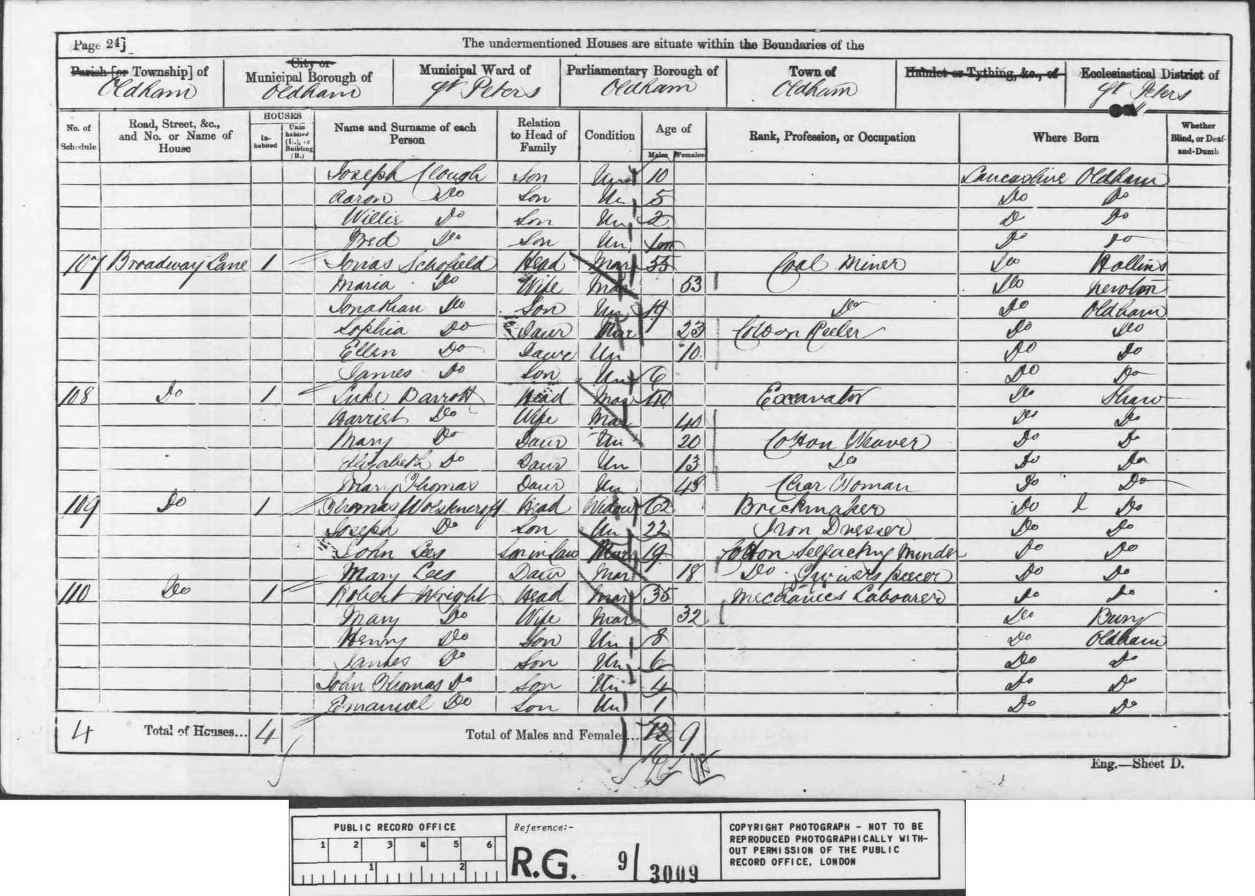 Page 24]
The undermentioned Houses are situate within the Boundaries of the
Parish [or Township] of City or Municipal Borough of Municipal Ward of Parliamentary Borough of Town of Hamlet or Tything, &c., of Ecclesiastical District of
Oldham Oldham St Peters Oldham Oldham St Peters
No. of Schedule Road, Street, &c., and No. or Name of House HOUSES Inhabited Uninhabited (U.), or Building (B.) Name and Surname of each Person Relation to Head of Family Condition Age of Males Females Rank, Profession, or Occupation Where Born Whether Blind, or Deaf-and-Dumb
Joseph Clough Son Un 10 Lancashire Oldham
Aaron Do Son Un 5 Do Do
Willie Do Son Un 2 D Do
Fred Do Son Un Do Do
107 Broadway Lane 1 Jonas Schofield Head Mar 55 Coal Miner Do Hollins
Maria Do Wife Mar 53 Do Newton
Jonathan Do Son Un 19 Do Do Oldham
Sophia Do Daur Mar 23 Cotton Reeler Do Do
Ellen Do Daur Un 10 Do Do
James Do Son Un 6 Do Do
108 Do 1 Luke Head Mar 40 Excavator Do Shaw
Harriet Do Wife Mar 40 Do Do
Mary Do Daur Un 20 Cotton Weaver Do Do
Elizabeth Do Daur Un 13 Do Do Do
Mary Thomas Daur Un 48 Char Woman Do Do
109 Do 1 Thomas Wolstencroft Head Widowr 62 Brickmaker Do Do
Joseph Do Son Un 22 Iron Dresser Do Do
John Lees Son in law Mar 19 Cotton Selfacting Minder Do Do
Mary Lees Daur Mar 18 Do piecer Do Do
110 Do 1 Robert Wright Head Mar 35 Mechanics Labourer Do Do
Mary Do Wife Mar 32 Do Bury
Henry Do Son Un 8 Do Oldham
James Do Son Un 6 Do Do
John Thomas Do Son Un 4 Do D
Emanuel Do Son Un 1 Do Do
4 Total of Houses... 4 Total of Males and Females... 12 9
16
Eng.—Sheet D.
PUBLIC RECORD OFFICE
1 2 3 4 5 6
1 2
Reference:-
R.G. 9/3009
COPYRIGHT PHOTOGRAPH - NOT TO BE
REPRODUCED PHOTOGRAPHICALLY WITH-
OUT PERMISSION OF THE PUBLIC
RECORD OFFICE, LONDON